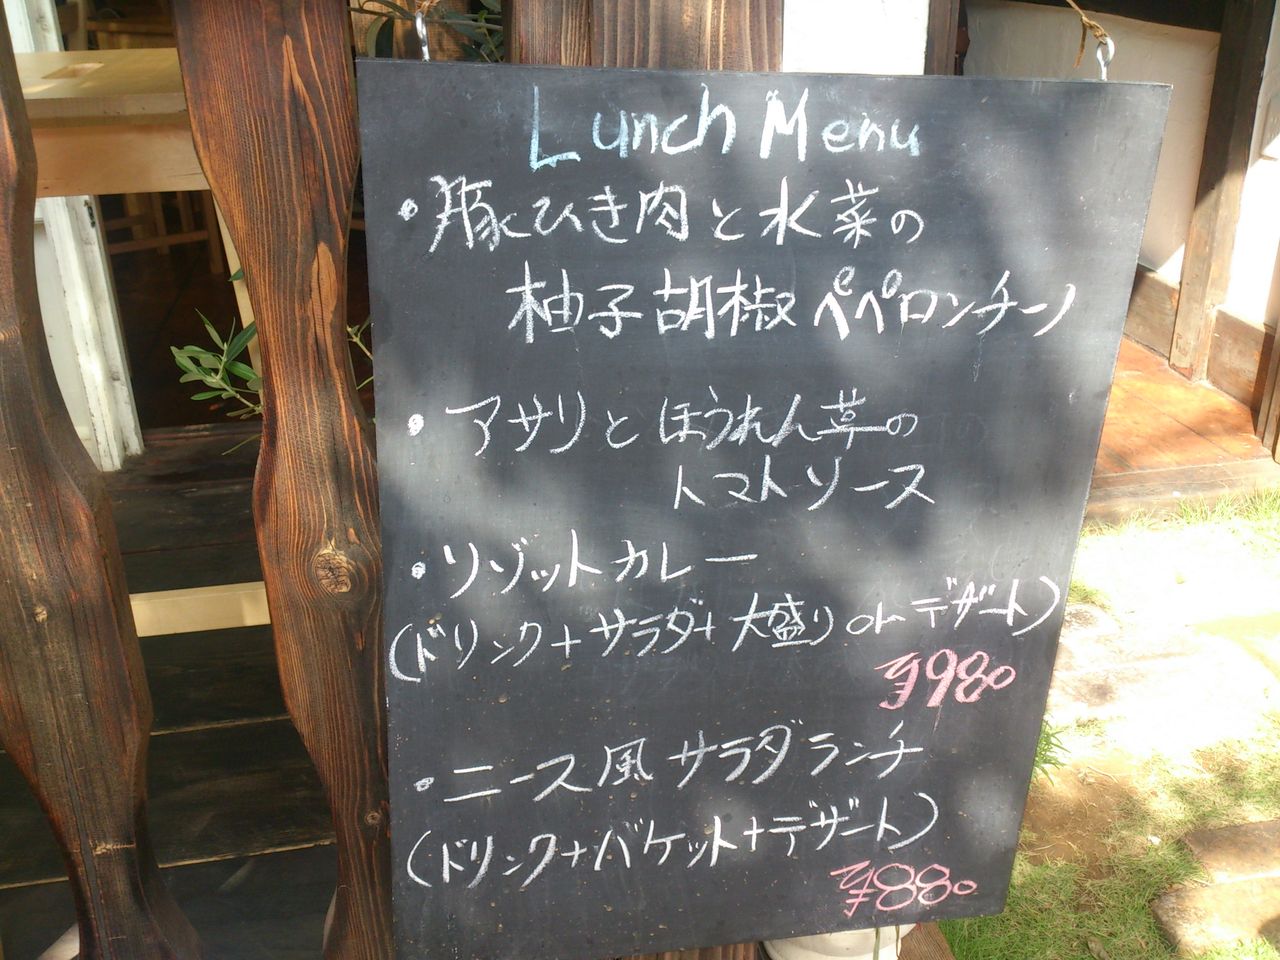 Lunch Menu
・豚ひき肉と水菜の
柚子胡椒ペペロンチーノ
・アサリとほうれん草の
トマトソース
・リゾットカレー
(ドリンク+サラダ+大盛り or デザート)
¥980
・ニース風サラダランチ
(ドリンク+バケット+デザート)
¥880